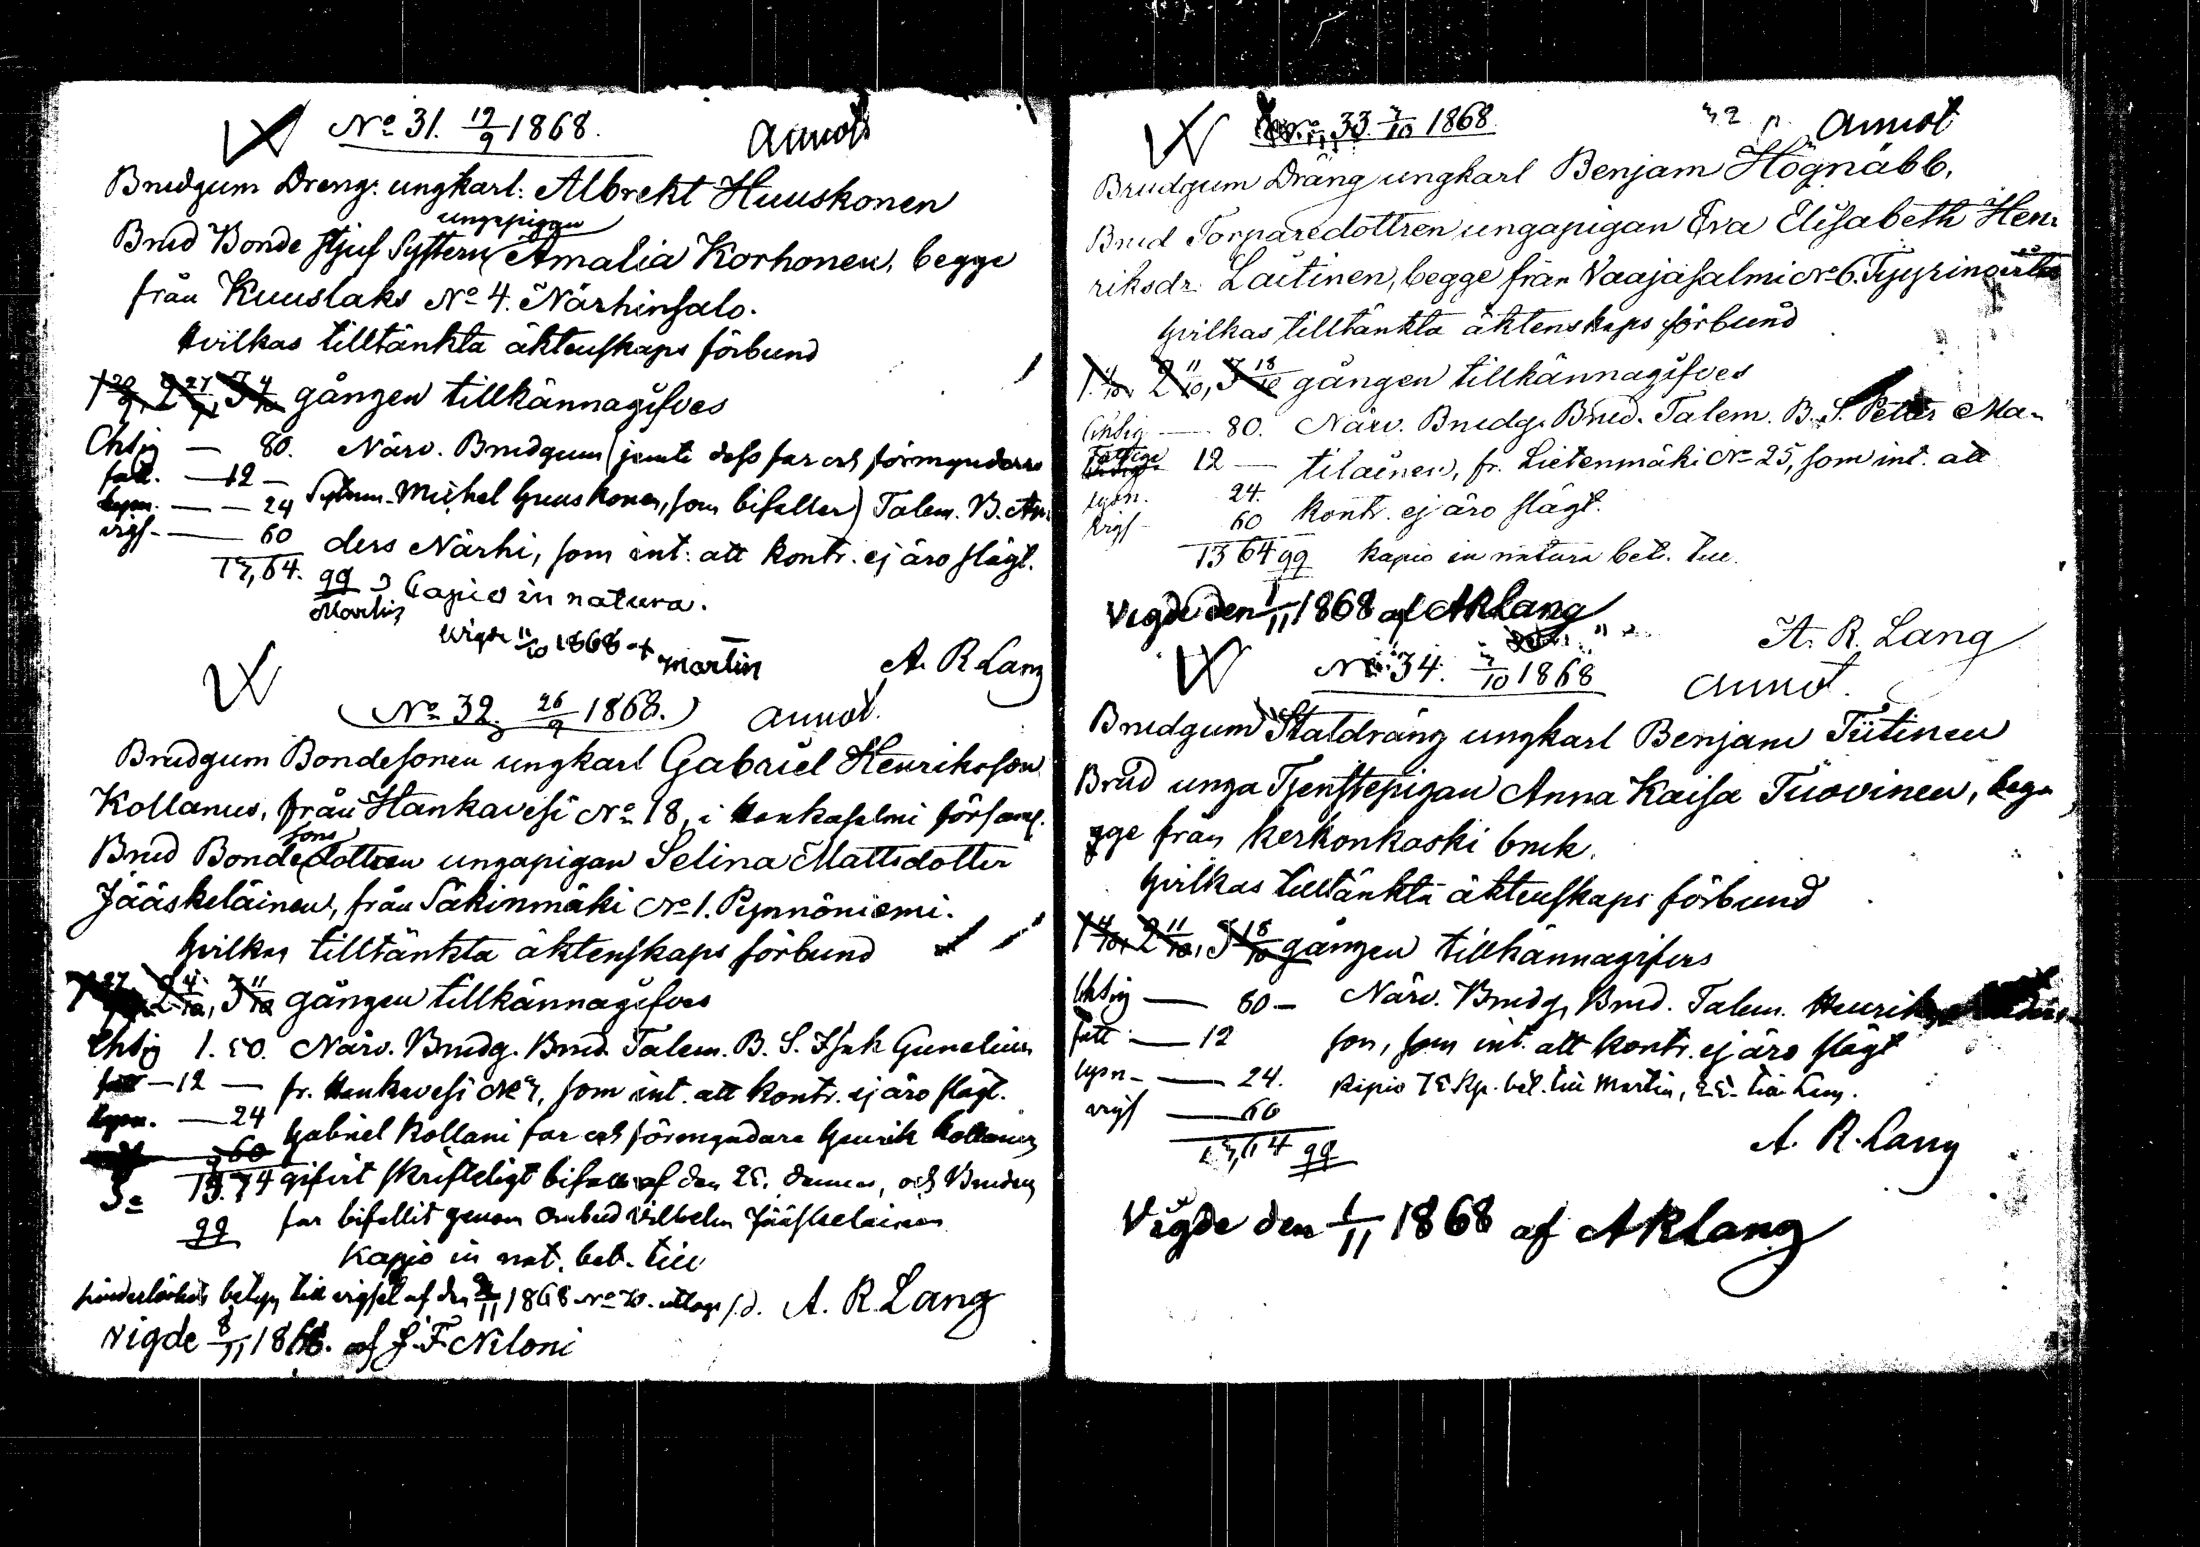 No 31. 19/9 1868. Annot
Brudgum Dreng: ungkarl: Albrekt Huuskonen
ungapigan
Brud Bonde stjuf Systern Amalia Korhonen, begge
från Kuuslaks No 4. Närhinsalo.
Hvilkas tilltänkta äktenskaps förbund
1 20/9, 2 27/9, 3 4/10 gången tillkännagifves
Chsig — 80. Närv. Brudgum (jemte dess far och förmyndare
fatt. — 12 —
lysn. — — 24 Sytnm. Michel Huuskonen, som bifaller) Talem. B. An-
vigs. — 60 ders Närhi, som int. att kontr. ej äro slägt.
13,64. gg Capio in natura.
Martin
Vigde 11/10 1868 af Martin
A. R. Lang
No 32. 26/9 1868. Annot.
Brudgum Bondesonen ungkarl Gabriel Henriksson
Kollanus, från Hankavesi No 18, i Hankasalmi församl.
sons
Brud Bondedottren ungapigan Selina Mattsdotter
Jääskeläinen, från Säkinmäki No 1. Pynnöniemi.
Hvilkas tilltänkta äktenskaps förbund
1 27/9, 2 4/10, 3 11/10 gången tillkännagifves
Chsig 1. 50. Närv. Brudg. Brud. Talem. B. S. Isak Gunelius
fatt — 12 — fr. Hankavesi No 3, som int. att kontr. ej äro slägt.
lysn. — 24
60 Gabriel Kollani far och förmyndare Henrik Kollanus
gifvit skrifteligt bifall af den 25. dennes, och Brudens
gg far bifallit genom ombud Vilhelm Jääskeläinen
Kapio in nat. bet. till
hinderlöshets betyg till vigsel af den 1868 No uttagn s.d. A. R. Lang
vigde 8/11 1868. af J. F. Niloni
No 33. 3/10 1868 Annot
Brudgum Dräng ungkarl Benjam Högnäbb,
Brud Torparedottren ungapigan Eva Elisabeth Hen-
riksdr. Laitinen, begge från Vaajasalmi No 6.
Hvilkas tilltänkta äktenskaps förbund
1. 4/10, 2 11/10, 3 18/10 gången tillkännagifves
Chsig — 80. Närv. Brudg. Brud. Talem. B. S. Petter Ma-
Fattige 12 — tilainen, fr. Lietenmäki No 25, som int. att
lysn. 24. kontr. ej äro slägt.
vigs — 60
13 64 gg Kapio in natura bet. till
Vigde den 1/11 1868 af A R Lang
A. R. Lang
No 34. 3/10 1868 Annot.
Brudgum Staldräng ungkarl Benjam Tiitinen
Brud unga Tjenstepigan Anna Kaisa Tuovinen, be-
gge från Kerkonkoski bruk.
Hvilkas tilltänkta äktenskaps förbund
1 4/10, 2 11/10, 3 18/10 gången tillkännagifves
Chsig — 80 — Närv. Brudg. Brud. Talem. Henrik Anders-
fatt — 12 son, som int. att kontr. ej äro slägt
lysn — 24. Kapio 75 kp. bet. till Martin, 25. till Lang.
vigs — 60
13,64 gg
A. R. Lang
Vigde den 1/11 1868 af A R Lang